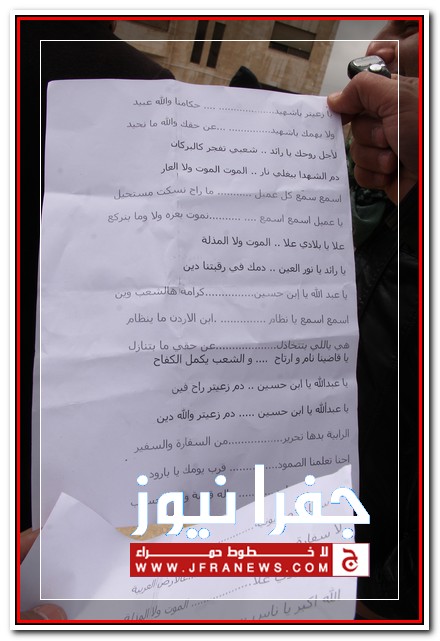 يا زعيتر ياشهيد.................... .... حكامنا والله عبيد
ولا يهمك ياشهيد............... ...عن حقك والله ما نحيد
لأجل روحك يا رائد .. شعبي تفجر كالبركان
دم الشهدا بيغلي نار .. الموت الموت ولا العار
اسمع سمّع كل عميل ........... ما راح نسكت مستحيل
يا عميل اسمع اسمع .... ...........نموت بعزه ولا وما بنركع
علا يا بلادي علا .. الموت ولا المذلة
يا رائد يا نور العين .. دمك في رقبتنا دين
يا عبد الله يا إبن حسين...............كرامة هالشعب وين
اسمع اسمع يا نظام .............. .ابن الاردن ما ينظام
هي ياللي بتتخاذل...................عن حقي ما بتنازل
يا قاضينا نام و ارتاح .... و الشعب يكمل الكفاح
يا عبدالله يا ابن حسين .. دم زعيتر راح فين
يا عبدالله يا ابن حسين ..... دم زعيتر والله دين
الرابية بدها تحرير................من السفارة والسفير
احنا تعلمنا الصمود............... قرب يومك يا بارود
جفرا نيوز
لا خطوط حمراء
WWW.JFRANEWS.COM
ولا سفارة
علا...................... الموت ولا المذلة
الله اكبر يا ناس